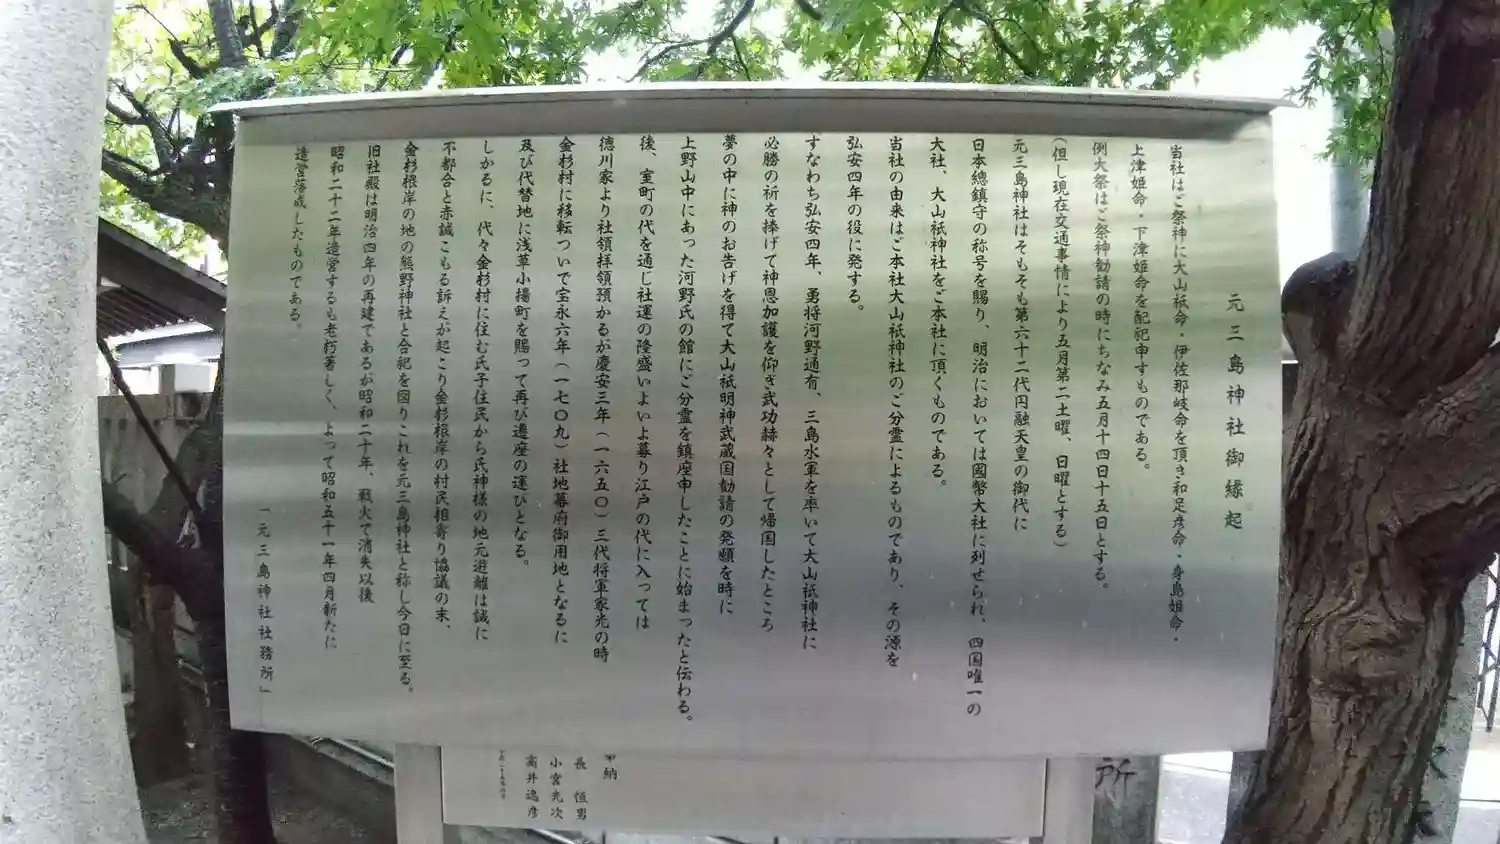 元三島神社御縁起
当社はご祭神に大山祗命・伊佐那岐命を頂き和足彦命・身島姐命・
上津姫命・下津姫命を配祀申すものである。
例大祭はご祭神勧請の時にちなみ五月十四日十五日とする。
(但し現在交通事情により五月第二土曜、日曜とする)
元三島神社はそもそも第六十二代円融天皇の御代に
日本總鎮守の称号を賜り、明治においては國幣大社に列せられ、四国唯一の
大社、大山祇神社をご本社に頂くものである。
当社の由来はご本社大山祇神社のご分霊によるものであり、その源を
弘安四年の役に発する。
すなわち弘安四年、勇将河野通有、三島水軍を率いて大山祗神社に
必勝の祈を捧げて神恩加護を仰ぎ武功赫々として帰国したところ
夢の中に神のお告げを得て大山祗明神武蔵国勧請の発願を時に
上野山中にあった河野氏の館にご分霊を鎮座申したことに始まったと伝わる。
後、室町の代を通じ社運の隆盛いよいよ募り江戸の代に入っては
徳川家より社領拝領預かるが慶安三年(一六五〇)三代将軍家光の時
金杉村に移転ついで宝永六年(一七〇九)社地幕府御用地となるに
及び代替地に浅草小揚町を賜って再び遷座の運びとなる。
しかるに、代々金杉村に住む氏子住民から氏神様の地元遊離は誠に
不都合と赤誠こもる訴えが起こり金杉根岸の村民相寄り協議の末、
金杉根岸の地の熊野神社と合祀を図りこれを元三島神社と称し今日に至る。
旧社殿は明治四年の再建であるが昭和二十年、戦火で消失以後
昭和二十二年造営するも老朽著しく、よって昭和五十一年四月新たに
造営落成したものである。
「元三島神社社務所」
納
長 恒男
小宮光次
高井逸彦
所